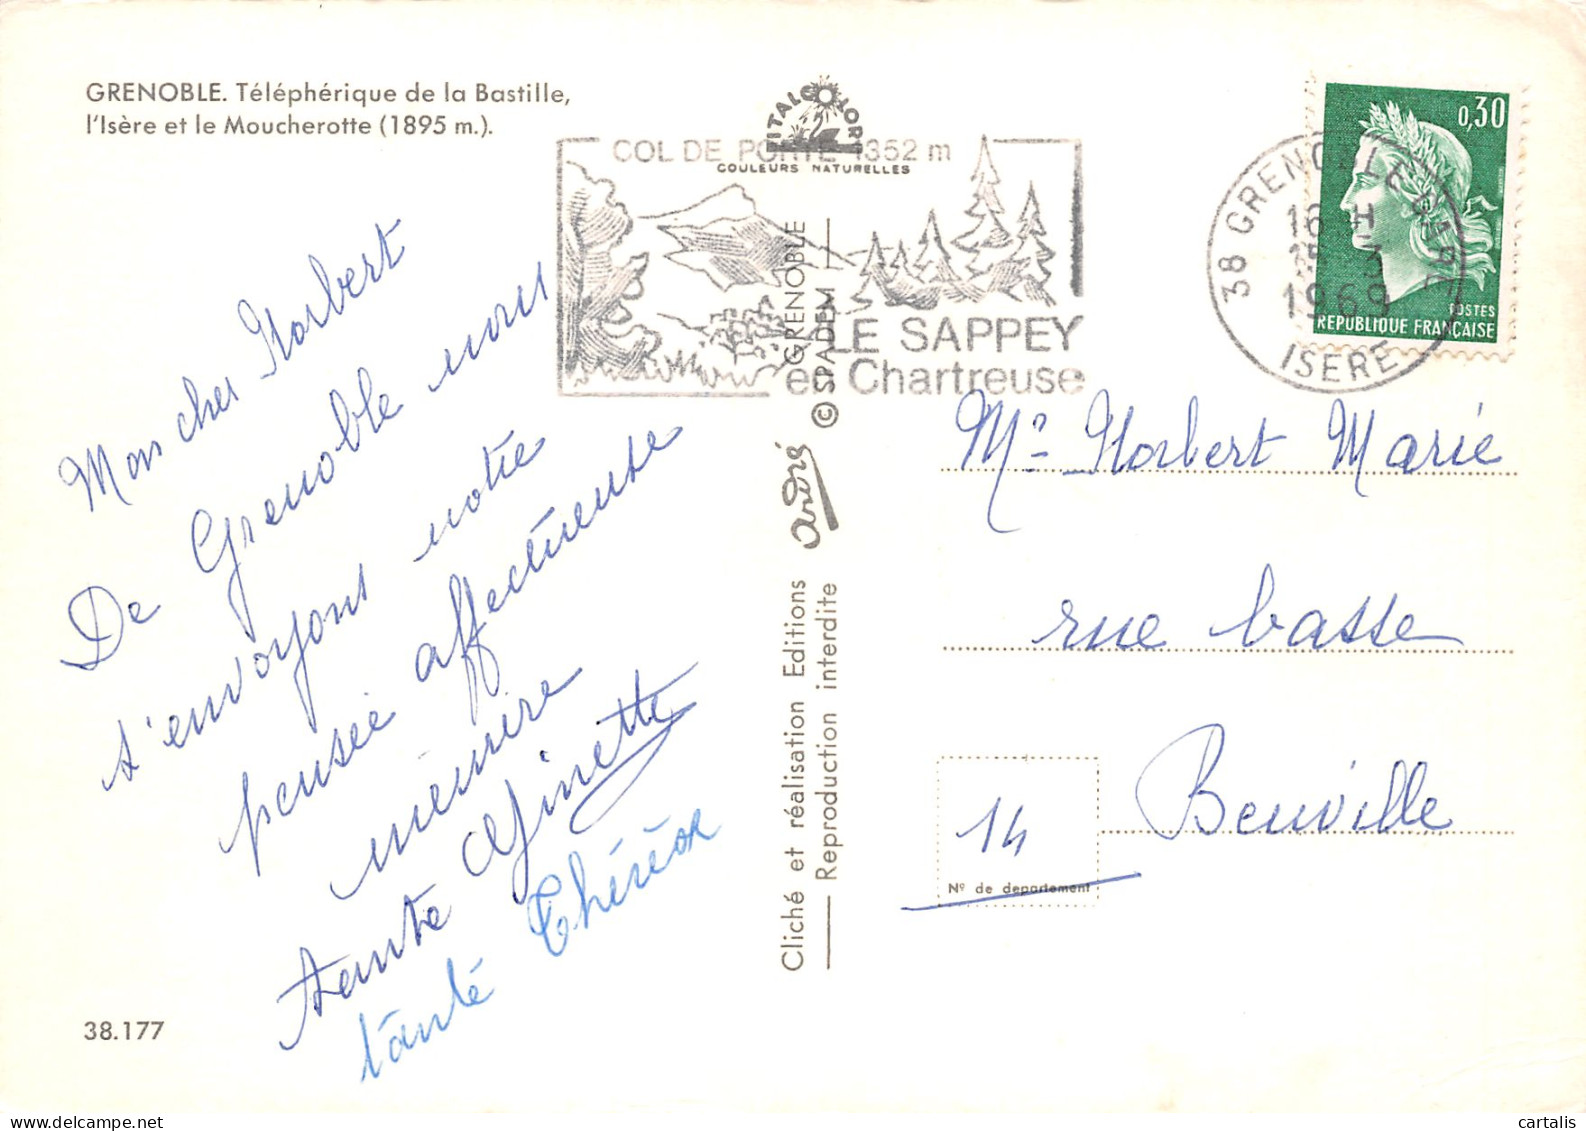 GRENOBLE. Téléphérique de la Bastille,
l'Isère et le Moucherotte (1895 m.).
ITALCOLOR
COULEURS NATURELLES
COL DE PORTE 1352 m
LE SAPPEY
en Chartreuse
38 GRENOBLE GARE
16 H
3
1969
ISERE
0,30
POSTES
REPUBLIQUE FRANÇAISE
Mon cher Norbert
De Grenoble nous
t'envoyons notre
pensée affectueuse
tante Ginette
tante Thérèse
38.177
Cliché et réalisation Editions André GRENOBLE
Reproduction interdite © SPADEM
Mr Norbert Marie
rue basse
Beuville
14
Nº de departement
cartalis